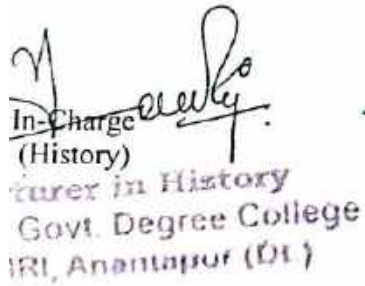 In-Charge
(History)
turer in History
Govt. Degree College
IRI, Anantapur (Dt.)